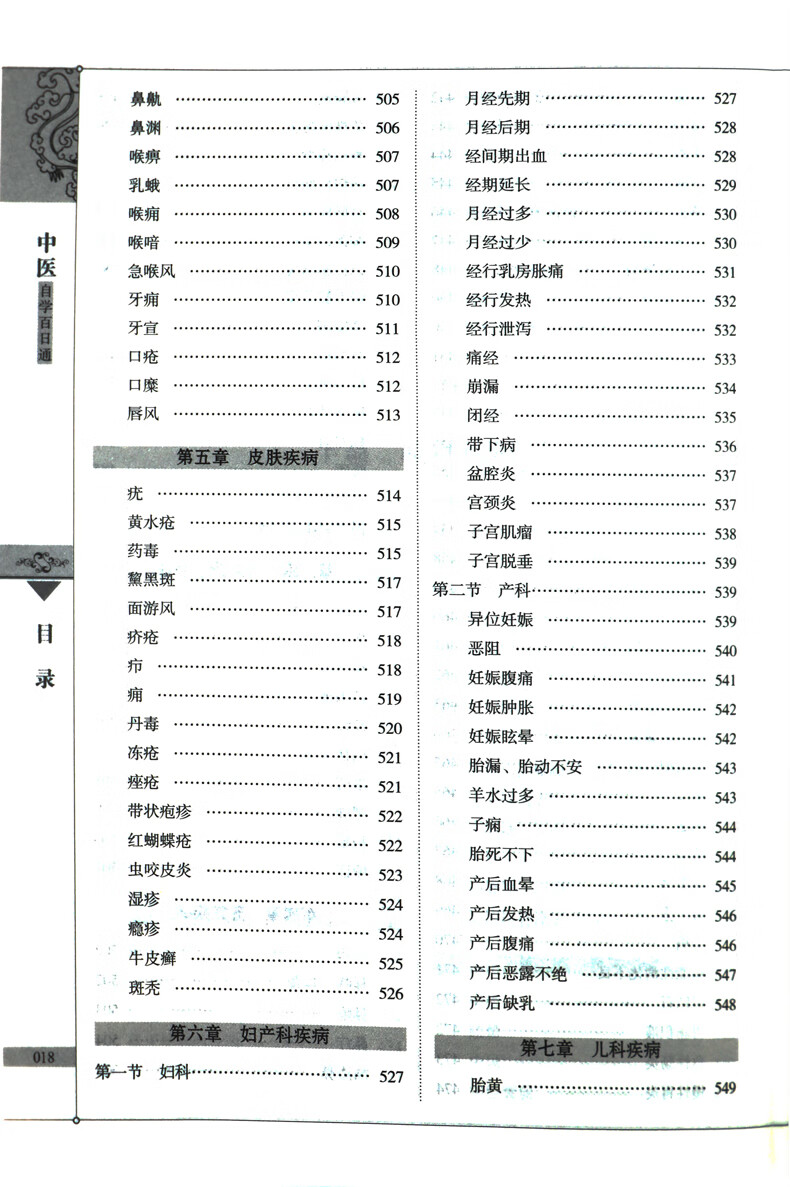 中医
自学百日通
目录
018
鼻鼽 …………………………… 505
鼻渊 …………………………… 506
喉痹 …………………………… 507
乳蛾 …………………………… 507
喉痈 …………………………… 508
喉喑 …………………………… 509
急喉风 …………………………… 510
牙痈 …………………………… 510
牙宣 …………………………… 511
口疮 …………………………… 512
口糜 …………………………… 512
唇风 …………………………… 513
第五章 皮肤疾病
疣 …………………………… 514
黄水疮 …………………………… 515
药毒 …………………………… 515
黧黑斑 …………………………… 517
面游风 …………………………… 517
疥疮 …………………………… 518
疖 …………………………… 518
痈 …………………………… 519
丹毒 …………………………… 520
冻疮 …………………………… 521
痤疮 …………………………… 521
带状疱疹 …………………………… 522
红蝴蝶疮 …………………………… 522
虫咬皮炎 …………………………… 523
湿疹 …………………………… 524
瘾疹 …………………………… 524
牛皮癣 …………………………… 525
斑秃 …………………………… 526
第六章 妇产科疾病
第一节 妇科…………………………… 527
月经先期 …………………………… 527
月经后期 …………………………… 528
经间期出血 …………………………… 528
经期延长 …………………………… 529
月经过多 …………………………… 530
月经过少 …………………………… 530
经行乳房胀痛 …………………………… 531
经行发热 …………………………… 532
经行泄泻 …………………………… 532
痛经 …………………………… 533
崩漏 …………………………… 534
闭经 …………………………… 535
带下病 …………………………… 536
盆腔炎 …………………………… 537
宫颈炎 …………………………… 537
子宫肌瘤 …………………………… 538
子宫脱垂 …………………………… 539
第二节 产科…………………………… 539
异位妊娠 …………………………… 539
恶阻 …………………………… 540
妊娠腹痛 …………………………… 541
妊娠肿胀 …………………………… 542
妊娠眩晕 …………………………… 542
胎漏、胎动不安 …………………………… 543
羊水过多 …………………………… 543
子痫 …………………………… 544
胎死不下 …………………………… 544
产后血晕 …………………………… 545
产后发热 …………………………… 546
产后腹痛 …………………………… 546
产后恶露不绝 …………………………… 547
产后缺乳 …………………………… 548
第七章 儿科疾病
胎黄 …………………………… 549